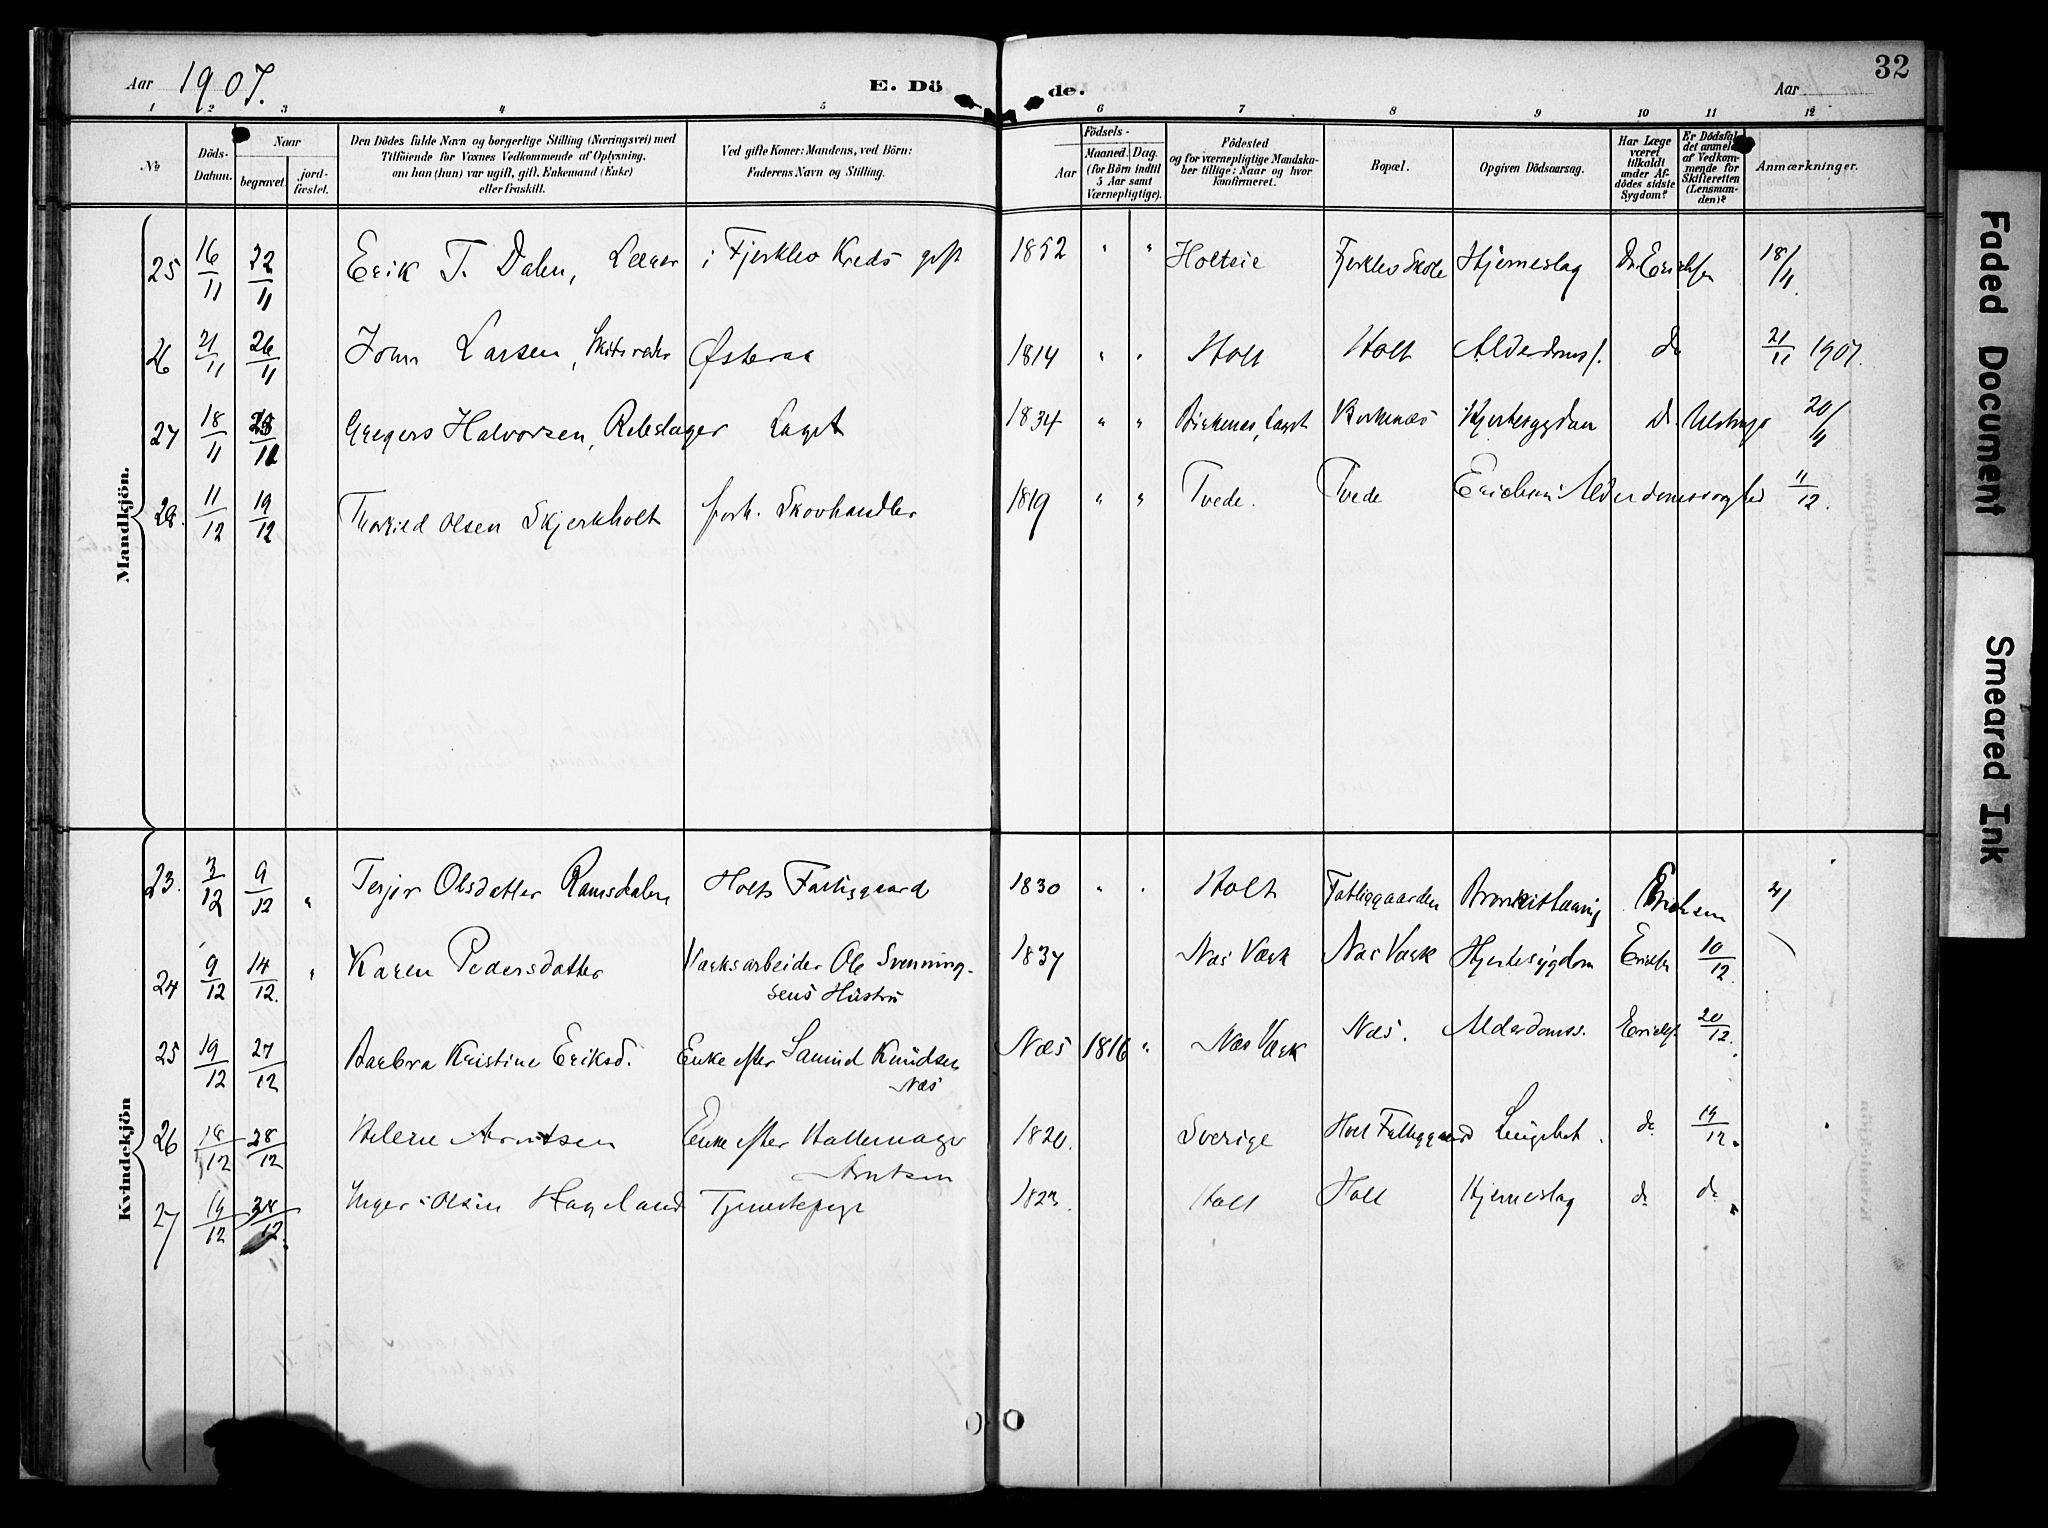 Aar 1907.
E. Dö
de.
Aar
32
1 2 3 4 5 6 7 8 9 10 11 12
№
Döds-Datum.
Naar
begravet.
jord-fæstet.
Den Dödes fulde Navn og borgerlige Stilling (Næringsvei) med
Tilföiende for Voxnes Vedkommende af Oplysning,
om han (hun) var ugift, gift, Enkemand (Enke)
eller fraskilt.
Ved gifte Koner: Mandens, ved Börn:
Faderens Navn og Stilling.
Födsels-
Aar
Maaned. Dag.
(for Börn indtil
5 Aar samt
Værnepligtige).
Födested
og for værnepligtige Mandska-
ber tillige: Naar og hvor
konfirmeret.
Bopæl.
Opgiven Dödsaarsag.
Har Læge
været
tilkaldt
under Af-
dödes sidste
Sygdom?
Er Dödsfal-
det anmeldt
af Vedkom-
mende for
Skifteretten
(Lensman-
den)?
Anmærkninger.
Mandkjön.
25 16/11 22/11 Erik T. Dalen, Lærer i Fjerklev Kreds gift 1852 " " Holteie Fjerklev Skole Hjerneslag Dr. Erichsen 18/11.
26 21/11 26/11 John Larsen, Østeraa 1814 " " Holt Holt Alderdoms s. do 21/11 1907.
27 18/11 Gregers Halvorsen, Rebslager Laget 1834 " " Birkenes, Laget Birkenæs Hjertesygdom Dr. Ulstrup 20/11
28. 11/12 19/12 Thorkild Olsen Skjerkholt forh. Skovhandler 1819 " " Tvede. Tvede Erichsen Alderdomssvaghed 11/12.
Kvindekjön
23. 3/12 9/12 " Terjer Olsdatter Ramsdalen Holts Fattiggaard 1830 " " Holt Fattiggaarden Erichsen 4/
24 9/12 14/12. " Karen Pedersdatter Værksarbeider Ole Svenning-
sens Hustru 1837 Næs Værk Næs Værk Hjertesygdom Erichs 10/12.
25 19/12 27/12 Barbra Kristine Eriksd. Enke efter Samund Knudsen
Næs Næs 1816 " Næs Værk Næs. Alderdomss. Erichs. 20/12.
26 18/12 28/12 Helene Arntsen Enke efter Hattemager
Arntsen 1820. Sverige Holt Fattiggaard do 19/12.
27 19/12 28/12. Inger Olsen Hageland Tjenestepige 1823. Holt Holt Hjerneslag do do
Faded Document
Smeared Ink